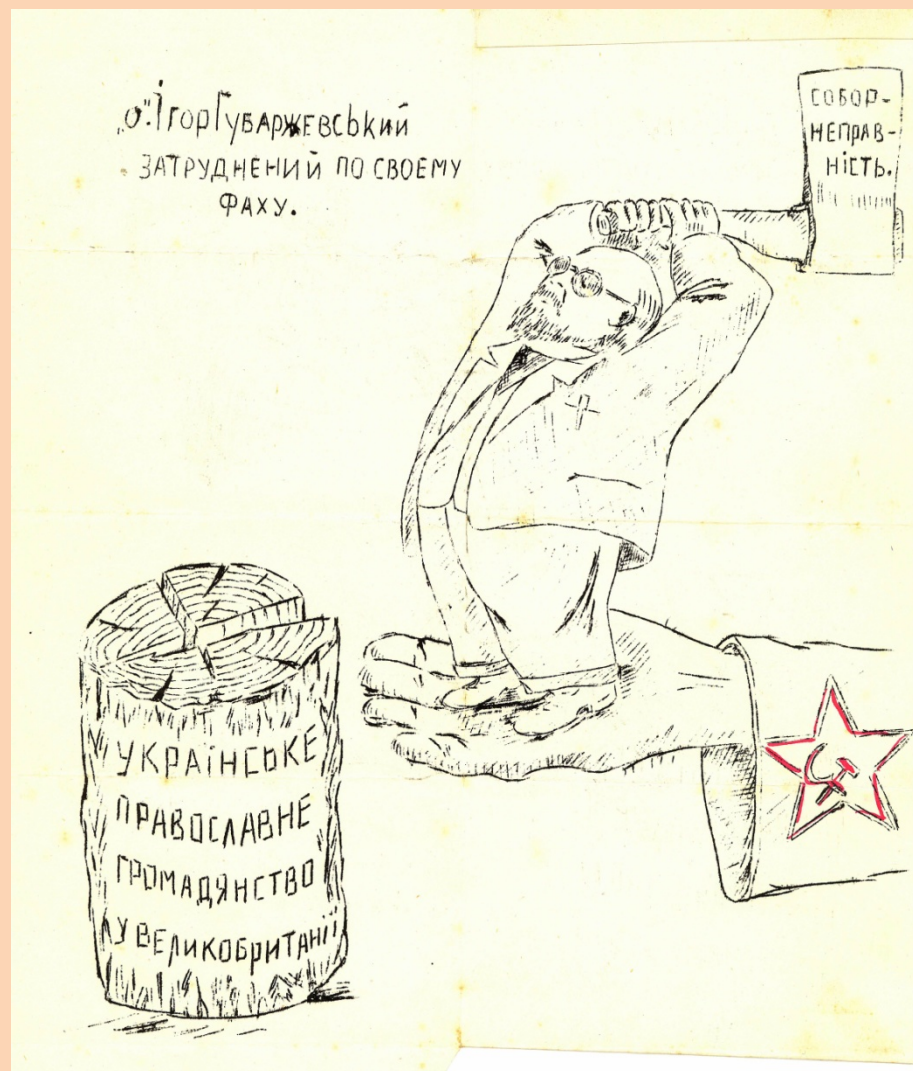 „о". Ігор Губаржевський
ЗАТРУДНЕНИЙ ПО СВОЕМУ
ФАХУ.
СОБОР-
НЕПРАВ-
НІСТЬ.
УКРАЇНСЬКЕ
ПРАВОСЛАВНЕ
ГРОМАДЯНСТВО
У ВЕЛИКОБРИТАНІЇ